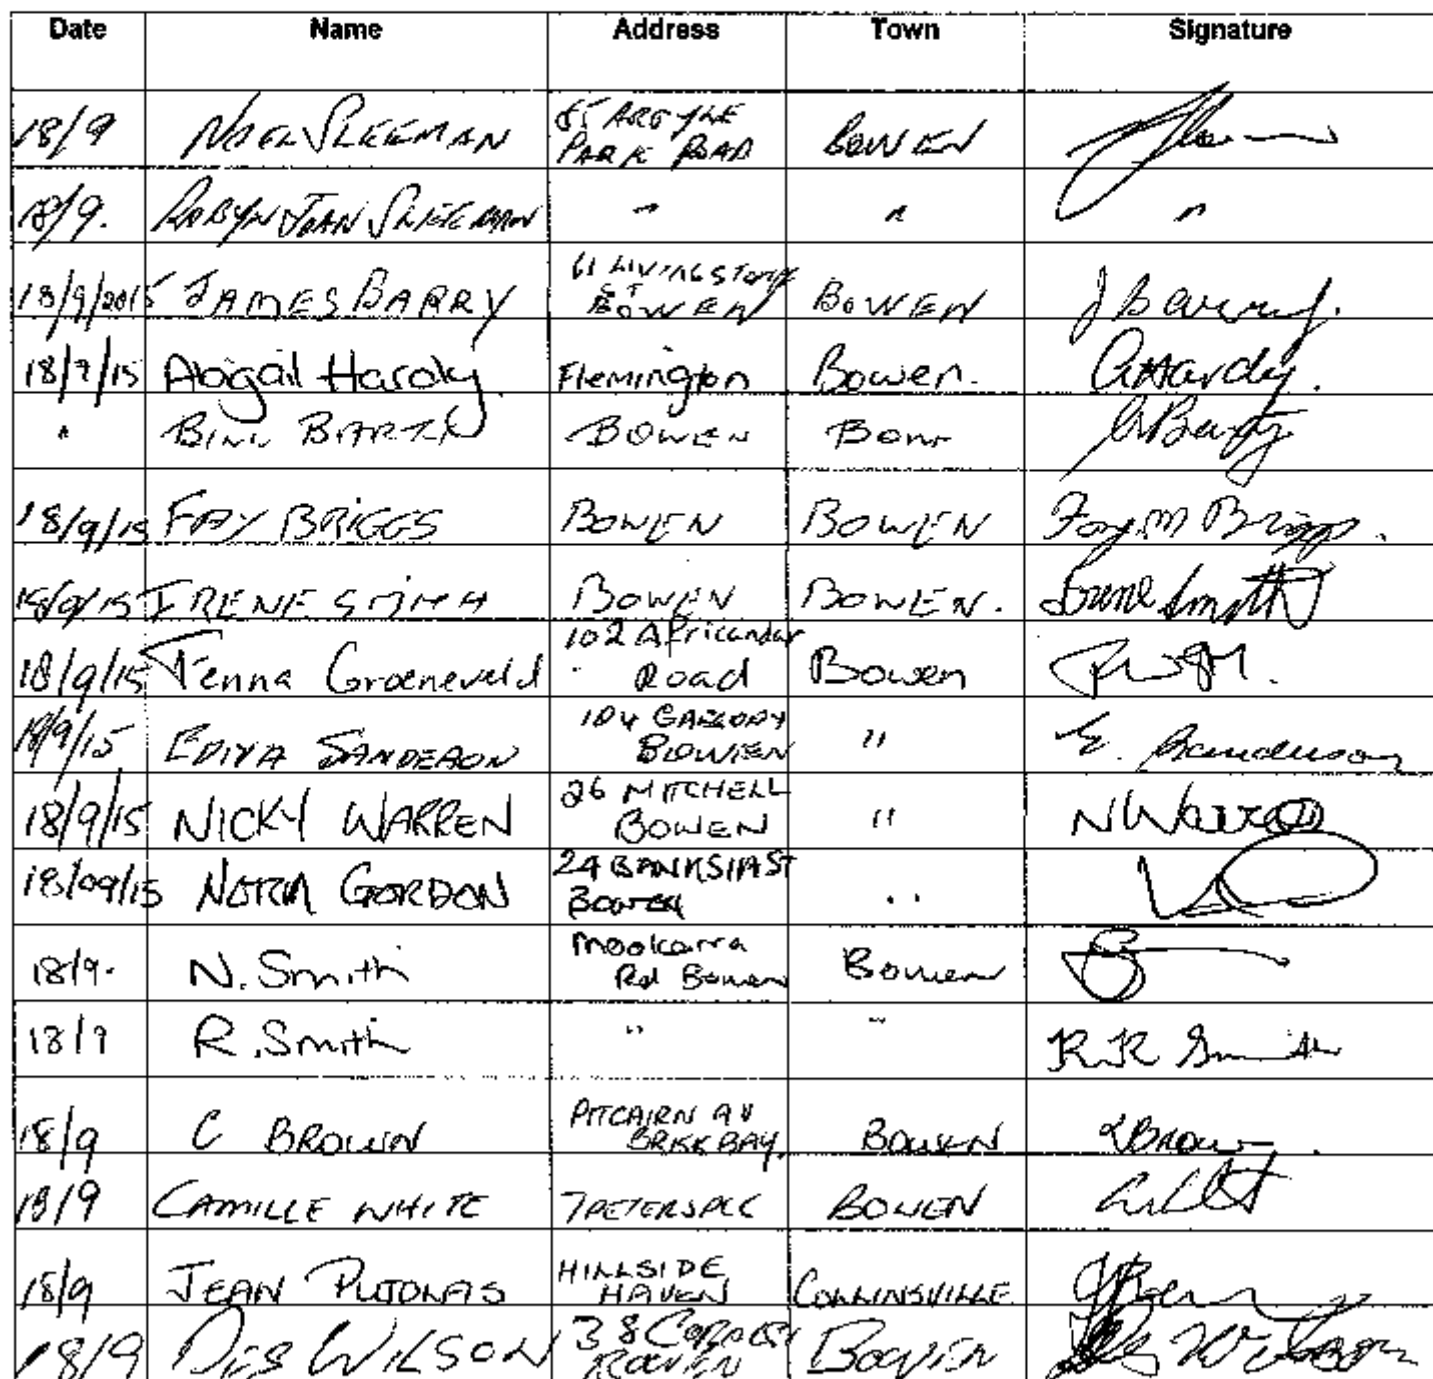 Date Name Address Town Signature
18/9 NOEL SLEEMAN 85 ARGYLE PARK ROAD BOWEN
18/9. ROBYN JOAN SLEEMAN " " "
18/9/2015 JAMES BARRY 61 LIVINGSTONE ST BOWEN BOWEN J Barry.
18/9/15 Abigail Hardy Flemington Bowen. A Hardy.
" BILL BOWEN
18/9/15 FAY BRIGGS BOWEN BOWEN Fay M Briggs.
18/9/15 IRENE SMITH BOWEN BOWEN. Irene Smith
18/9/15 Tenna Groeneveld 102 Africander Road Bowen
18/9/15 SANDERSON 104 GREGORY BOWEN " E. Sanderson
18/9/15 NICKY WARREN 26 MITCHELL BOWEN " N Warren
18/09/15 NORM GORDON 24 BANKSIA ST BOWEN "
18/9. N. Smith Mookarra Rd Bowen Bowen
18/9 R. Smith " " R.R Smith
18/9 C BROWN PITCAIRN AV BRISK BAY. BOWEN Brown.
18/9 CAMILLE WHITE 7 PETERS BOWEN
18/9 JEAN HILLSIDE HAVEN COLLINSVILLE
18/9 DES WILSON 38 BOWEN BOWEN Des Wilson